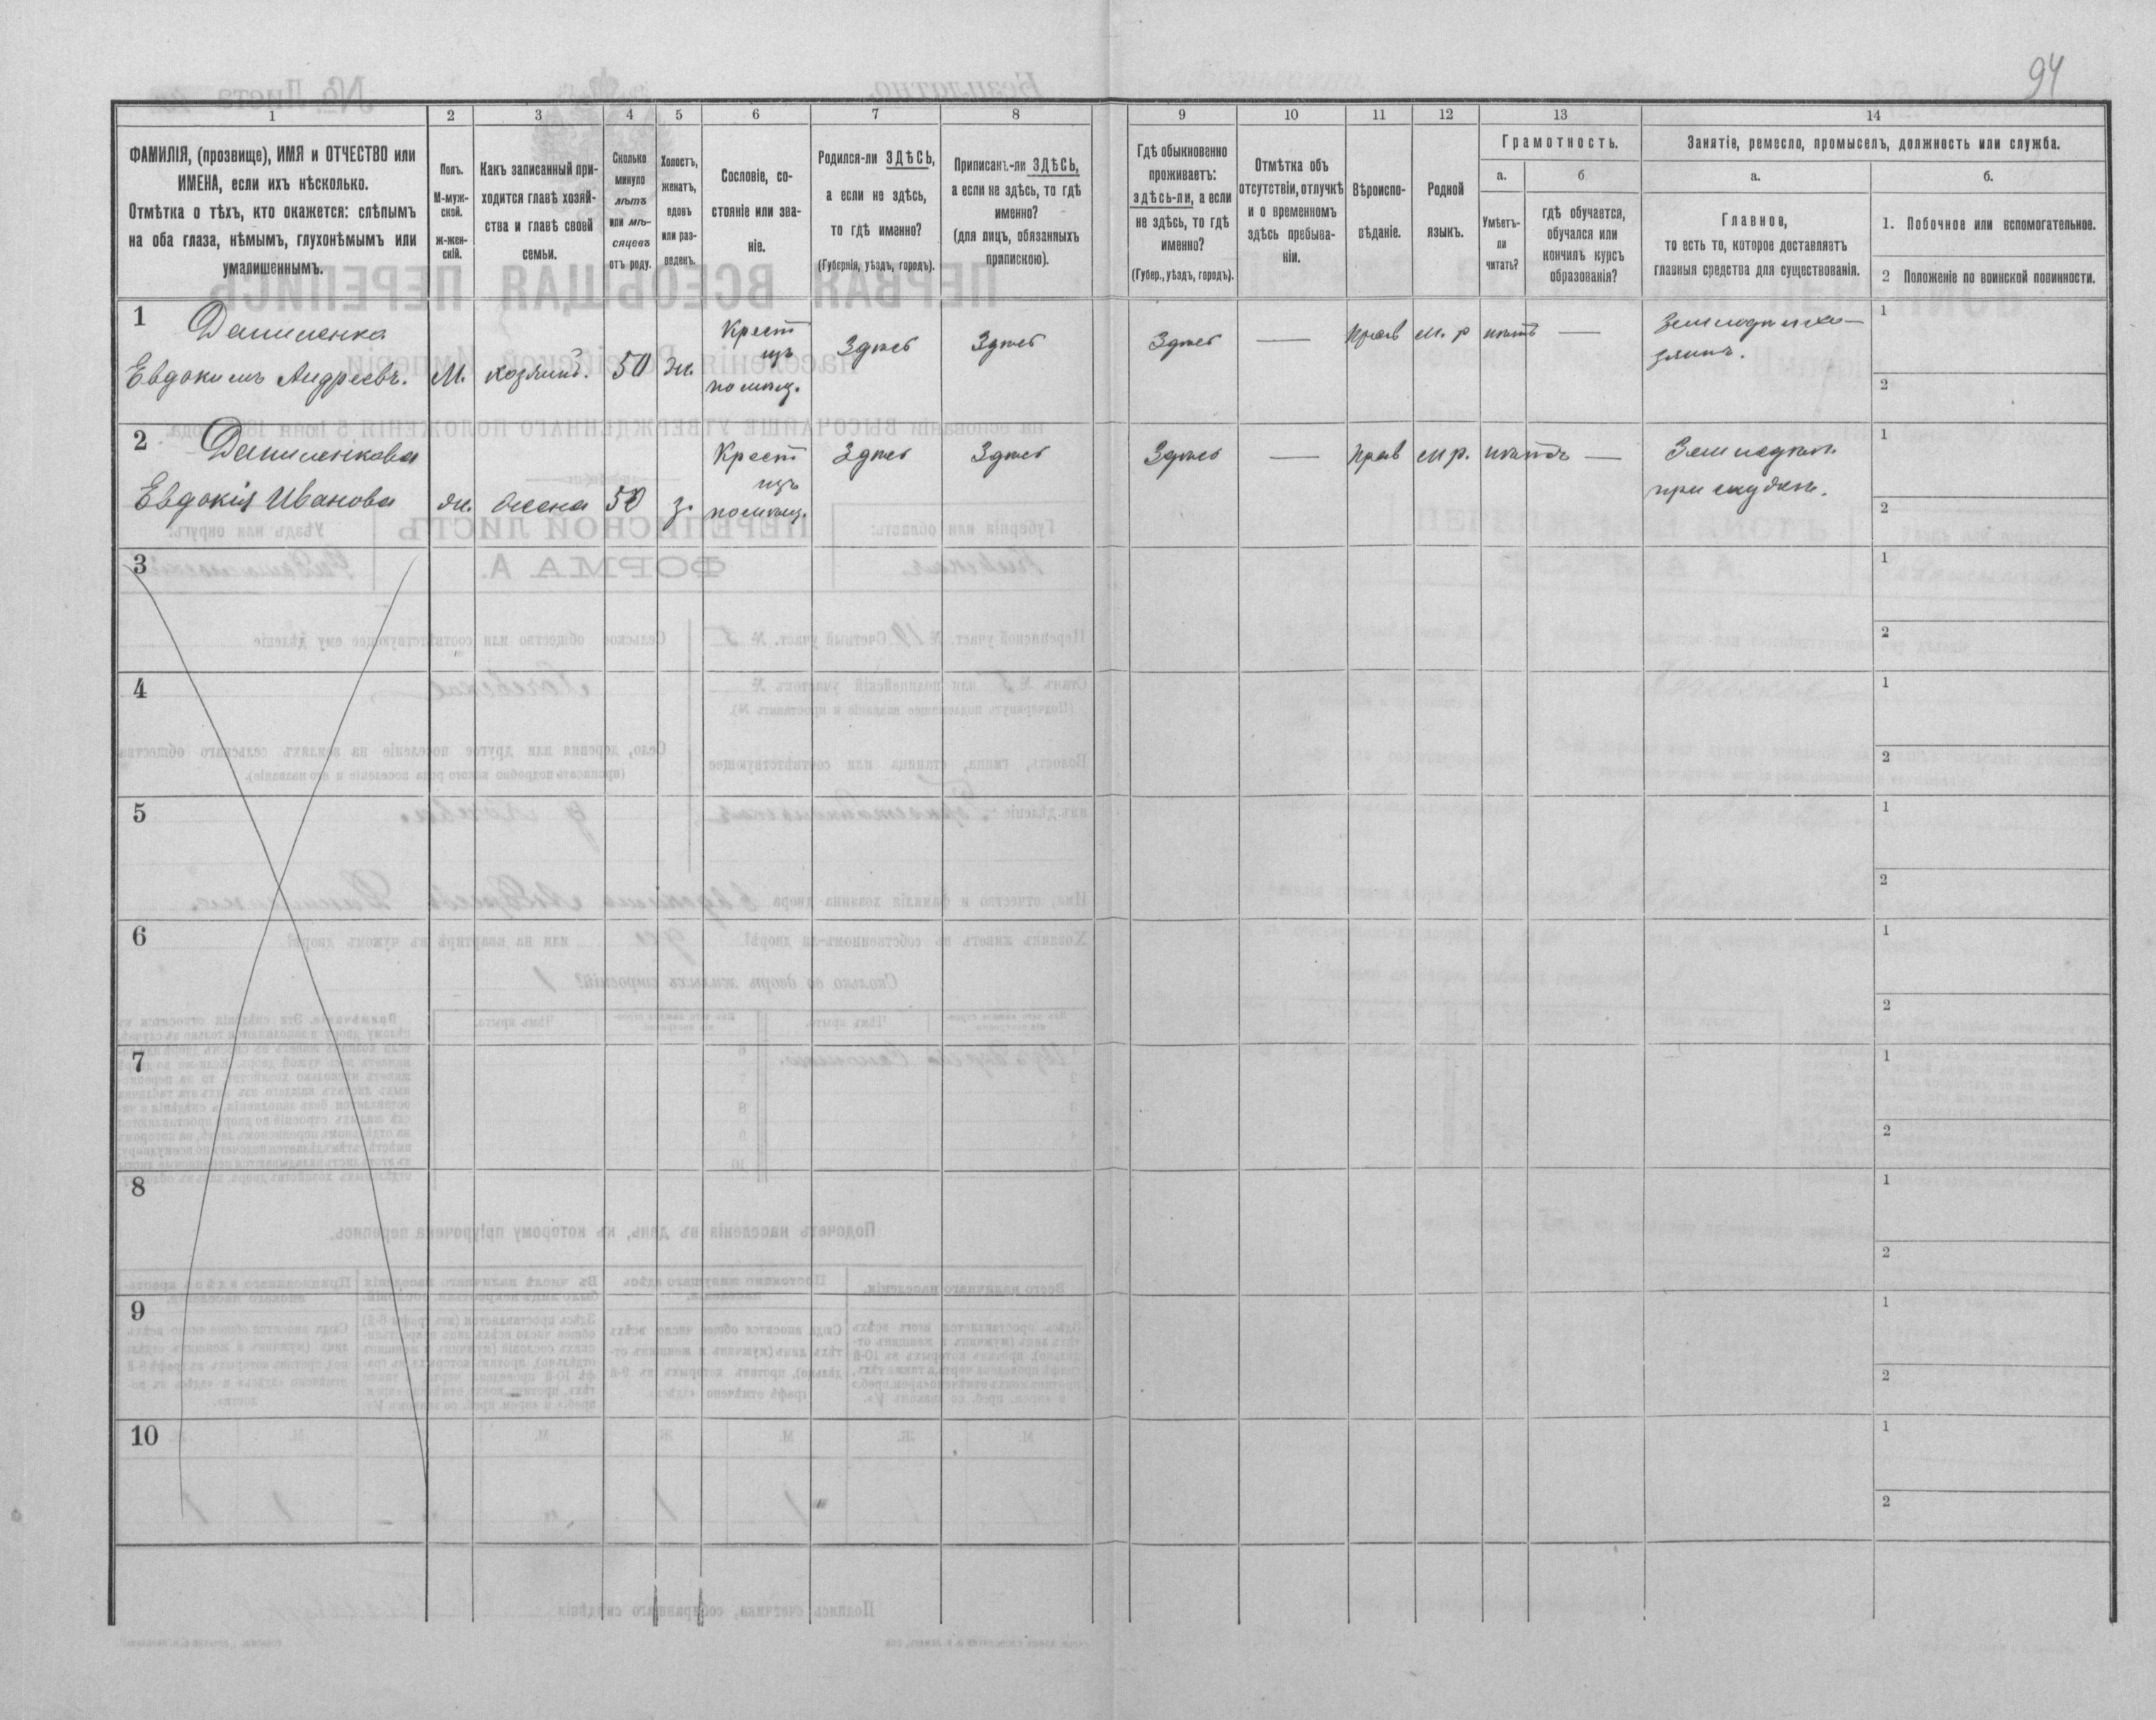 94
1 2 3 4 5 6 7 8 9 10 11 12 13 14
ФАМИЛІЯ, (прозвище), ИМЯ и ОТЧЕСТВО или
ИМЕНА, если ихъ нѣсколько.
Отмѣтка о тѣхъ, кто окажется: слѣпымъ
на оба глаза, нѣмымъ, глухонѣмымъ или
умалишеннымъ.
Полъ.
М-муж-
ской.
ж-жен-
скій.
Какъ записанный при-
ходится главѣ хозяй-
ства и главѣ своей
семьи.
Сколько
минуло
лѣтъ
или мѣ-
сяцевъ
отъ роду.
Холостъ,
женатъ,
вдовъ
или раз-
веденъ.
Сословіе, со-
стояніе или зва-
ніе.
Родился-ли ЗДѢСЬ,
а если не здѣсь,
то гдѣ именно?
(Губернія, уѣздъ, городъ).
Приписанъ-ли ЗДѢСЬ,
а если не здѣсь, то гдѣ
именно?
(для лицъ, обязанныхъ
припискою).
Гдѣ обыкновенно
проживаетъ:
здѣсь-ли, а если
не здѣсь, то гдѣ
именно?
(Губер., уѣздъ, городъ).
Отмѣтка объ
отсутствіи, отлучкѣ
и о временномъ
здѣсь пребыва-
ніи.
Вѣроиспо-
вѣданіе.
Родной
языкъ.
Грамотность.
а.
Умѣетъ-
ли
читать?
б
гдѣ обучается,
обучался или
кончилъ курсъ
образованія?
Занятіе, ремесло, промыселъ, должность или служба.
а.
Главное,
то есть то, которое доставляетъ
главныя средства для существованія.
б.
1. Побочное или вспомогательное.
2 Положеніе по воинской повинности.
1 Даниленко
Евдокимъ Андреевъ. М. хозяинъ. 50 ж.
Крест
изъ
помѣщ.
Здѣсь Здѣсь Здѣсь — Прав м. р нѣтъ —
Земледѣл хо-
зяинъ.
1
2
2 Даниленкова
Евдокія Иванова ж. жена 50 з.
Крест
изъ
помѣщ.
Здѣсь Здѣсь Здѣсь — Прав м р. нѣтъ —
Земледѣл.
при мужѣ.
1
2
3
1
2
4
1
2
5
1
2
6
1
2
7
1
2
8
1
2
9
1
2
10
1
2